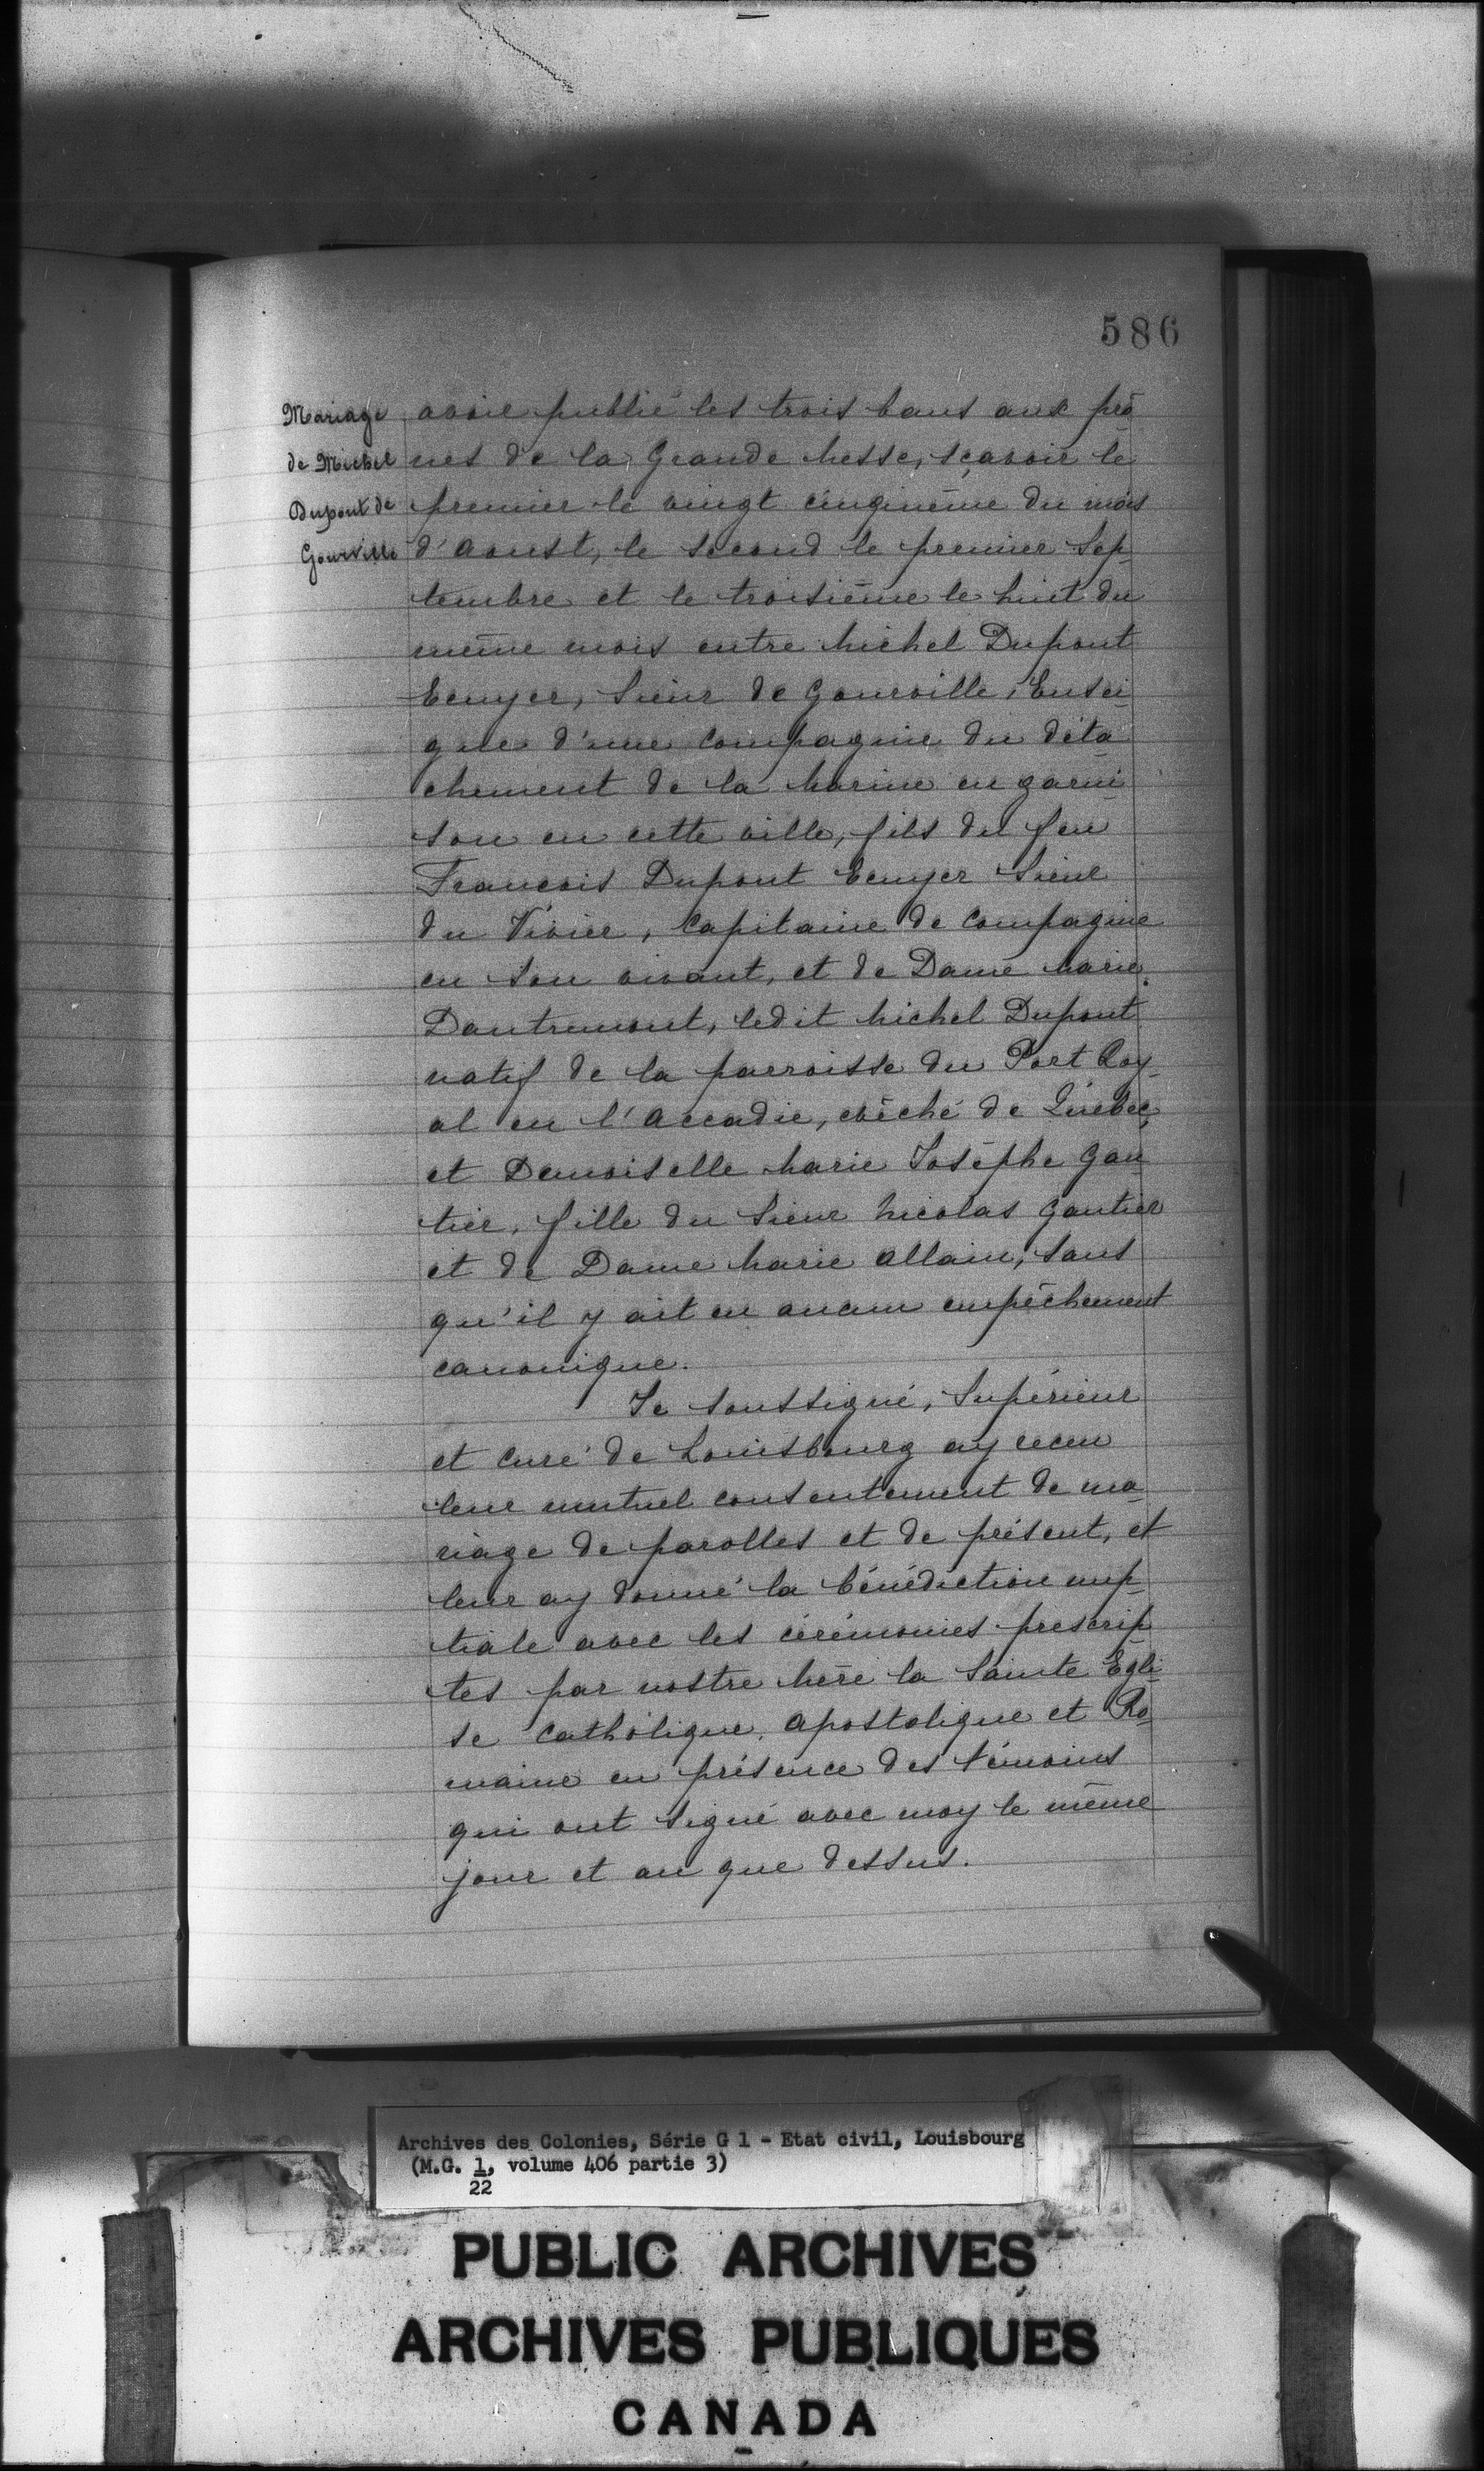 586
Mariage
de Michel
Dupont de
Gourville
avoir publié les trois bans aux prô
nes de la Grande Messe, sçavoir le
premier le vingt cinqiuème du mois
d'Aoust, le second le premier Sep-
tembre et le troisième le huit du
même mois entre Michel Dupont
Ecuyer, Sieur de Gourville, Ensei-
gne d'une Compagnie du déta-
chement de la Marine en garni-
son en cette ville, fils du feu
Francois Dupont Ecuyer Sieur
du Vivier, Capitaine de Compagnie
en son vivant, et de Dame Marie
Dantremont, ledit Michel Dupont
natif de la parroisse du Port Roy-
al en l'Accadie, evêché de Québec,
et Demoiselle Marie Josèphe Gau
tier, fille du Sieur Nicolas Gautier
et de Dame Marie Allain, sans
qu'il y ait eu aucun empêchement
canonique.
Je soussigné, Supérieur
et Curé de Louisbourg ay receu
leur mutuel consentement de ma-
riage de parolles et de présent, et
leur ay donné la bénédiction nup-
tiale avec les cérémonies prescrip-
tes par nostre Mère la Sainte Egli-
se Catholique, Apostolique et Ro-
maine en présence des témoins
qui ont signé avec moy le même
jour et an que dessus.
Archives des Colonies, Série G 1 - Etat civil, Louisbourg
(M.G. 1, volume 406 partie 3)
22
PUBLIC ARCHIVES
ARCHIVES PUBLIQUES
CANADA